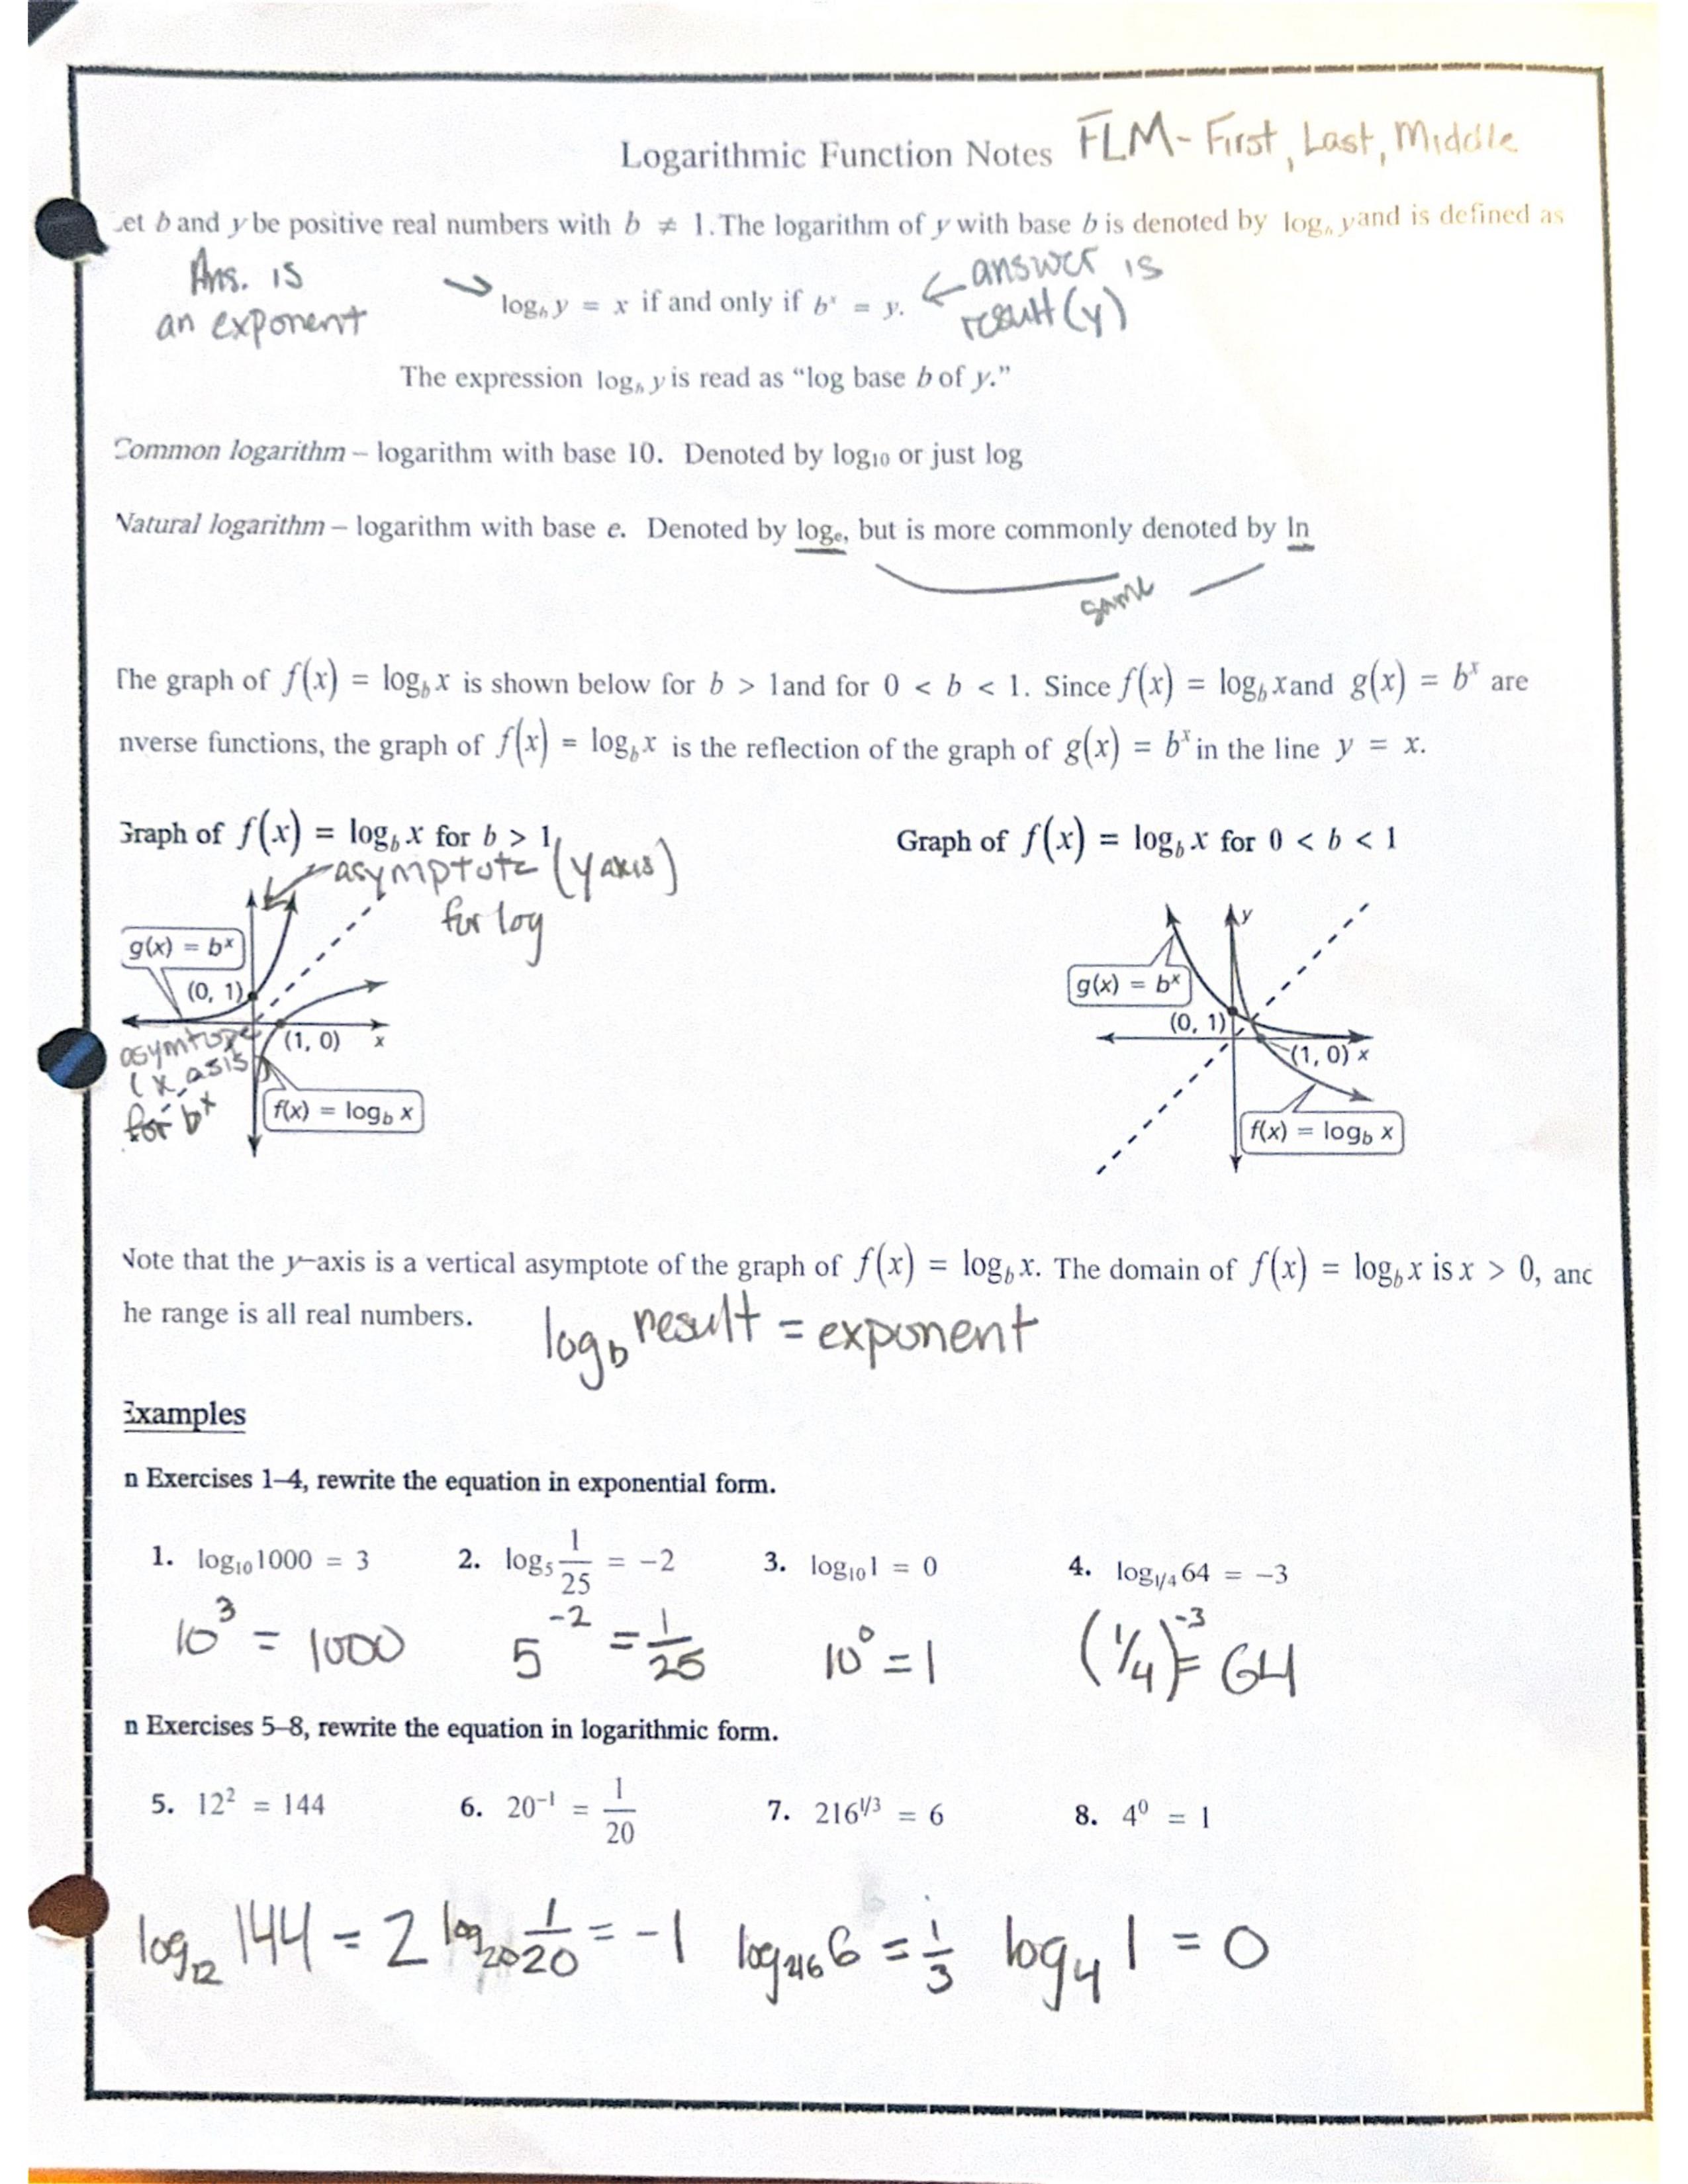 Logarithmic Function Notes FLM - First, Last, Middle
et b and y be positive real numbers with b ≠ 1. The logarithm of y with base b is denoted by log_b y and is defined as
Ans. is
an exponent
log_b y = x if and only if b^x = y.
answer is
result (y)
The expression log_b y is read as “log base b of y.”
Common logarithm – logarithm with base 10. Denoted by log₁₀ or just log
Natural logarithm – logarithm with base e. Denoted by logₑ, but is more commonly denoted by ln
same
The graph of f(x) = log_b x is shown below for b > 1 and for 0 < b < 1. Since f(x) = log_b x and g(x) = b^x are
nverse functions, the graph of f(x) = log_b x is the reflection of the graph of g(x) = b^x in the line y = x.
Graph of f(x) = log_b x for b > 1
asymptote (y axis)
for log
g(x) = b^x
(0, 1)
(1, 0) x
asymtope
(x asis)
for b^x
f(x) = log_b x
Graph of f(x) = log_b x for 0 < b < 1
y
g(x) = b^x
(0, 1)
(1, 0) x
f(x) = log_b x
Note that the y–axis is a vertical asymptote of the graph of f(x) = log_b x. The domain of f(x) = log_b x is x > 0, and
he range is all real numbers.
log_b result = exponent
Examples
n Exercises 1–4, rewrite the equation in exponential form.
1. log₁₀ 1000 = 3 2. log₅ 1/25 = −2 3. log₁₀ 1 = 0 4. log_1/4 64 = −3
10³ = 1000 5⁻² = 1/25 10⁰ = 1 (1/4)⁻³ = 64
n Exercises 5–8, rewrite the equation in logarithmic form.
5. 12² = 144 6. 20⁻¹ = 1/20 7. 216^1/3 = 6 8. 4⁰ = 1
log₁₂ 144 = 2 log₂₀ 1/20 = -1 log₂₁₆ 6 = 1/3 log₄ 1 = 0